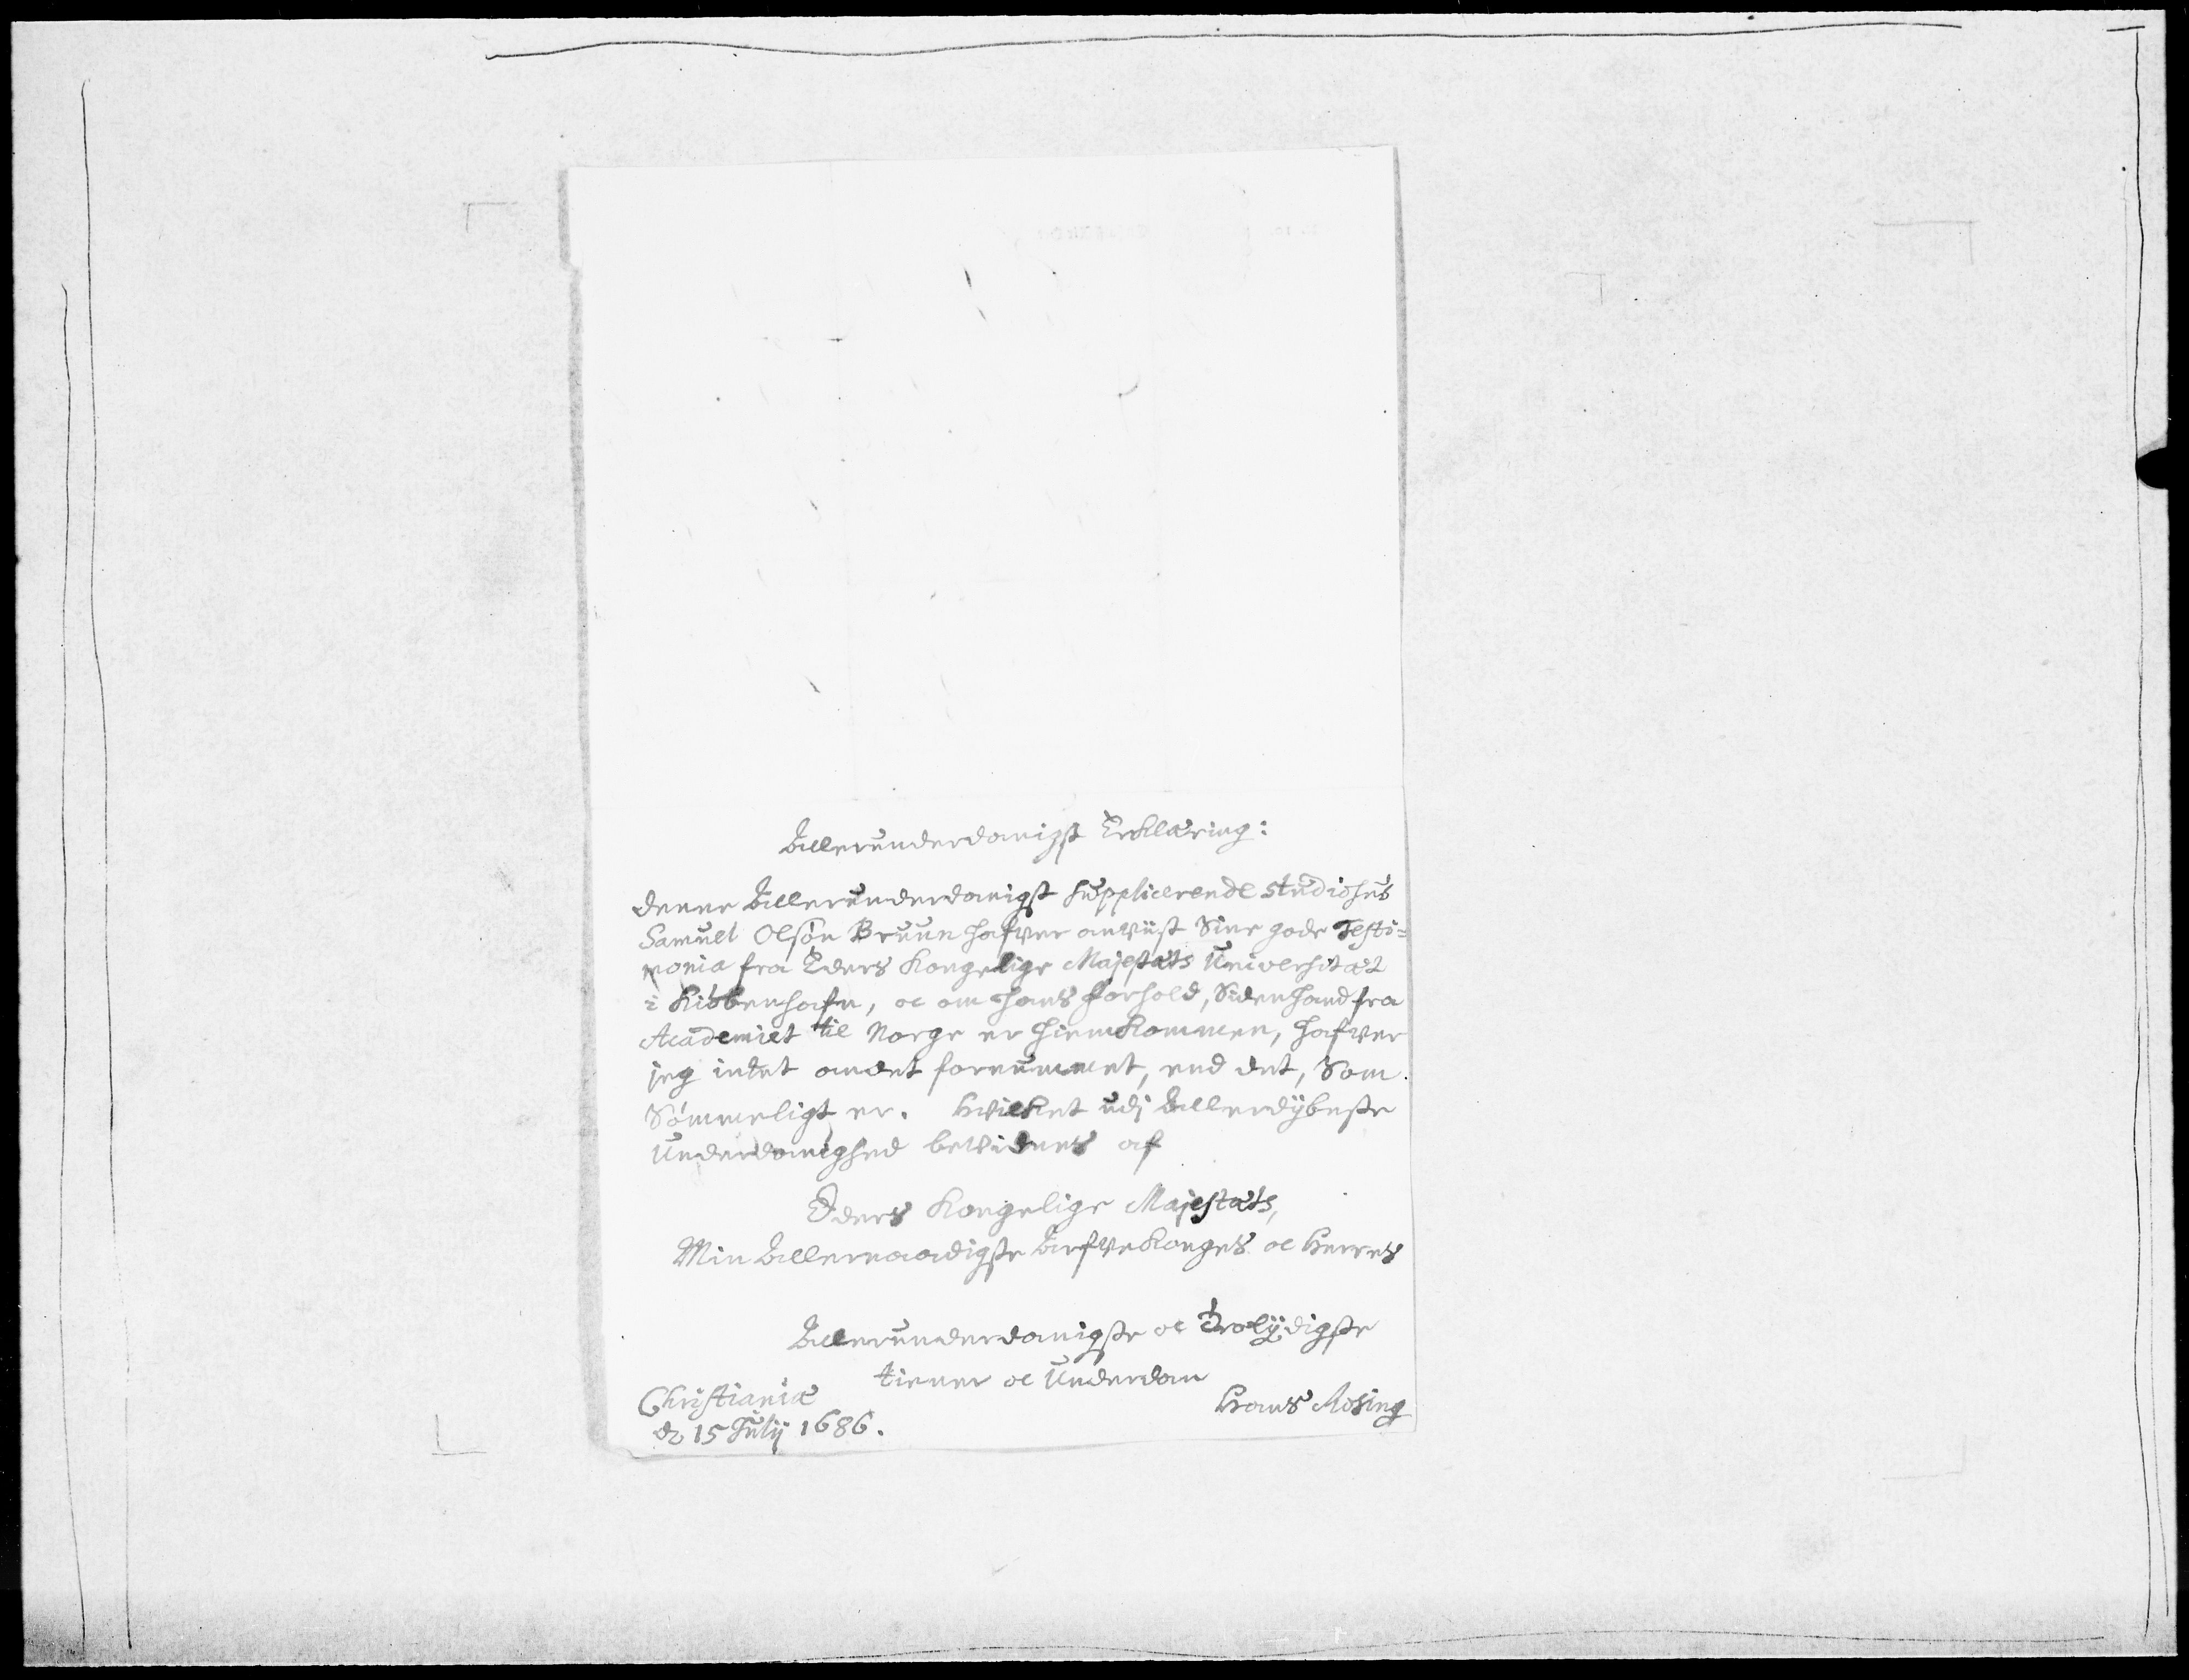 Allerunderdanigst Erklæring:
Denne Allerunderdanigst supplicerende studiosus
Samuel Olsøn Bruun hafver anviist Sine gode Testi=
monia fra Eders Kongelige Majestæts Universitæt
i Kiøbenhafn, oc om hans forhold, Siden hand fra
Academiet til Norge er hiemkommen, hafver
jeg intet andet fornummet, end det, Som
Sømmeligt er. Hvilket udj Allerdybeste
Underdanighed bevidnes af
Eders Kongelige Majestæts,
Min Allernaadigste ArfveKonges oc Herres
Allerunderdanigste oc Trolydigste
tiener oc Underdan
Christianiæ
d 15 Julij 1686.
Hans Rosing